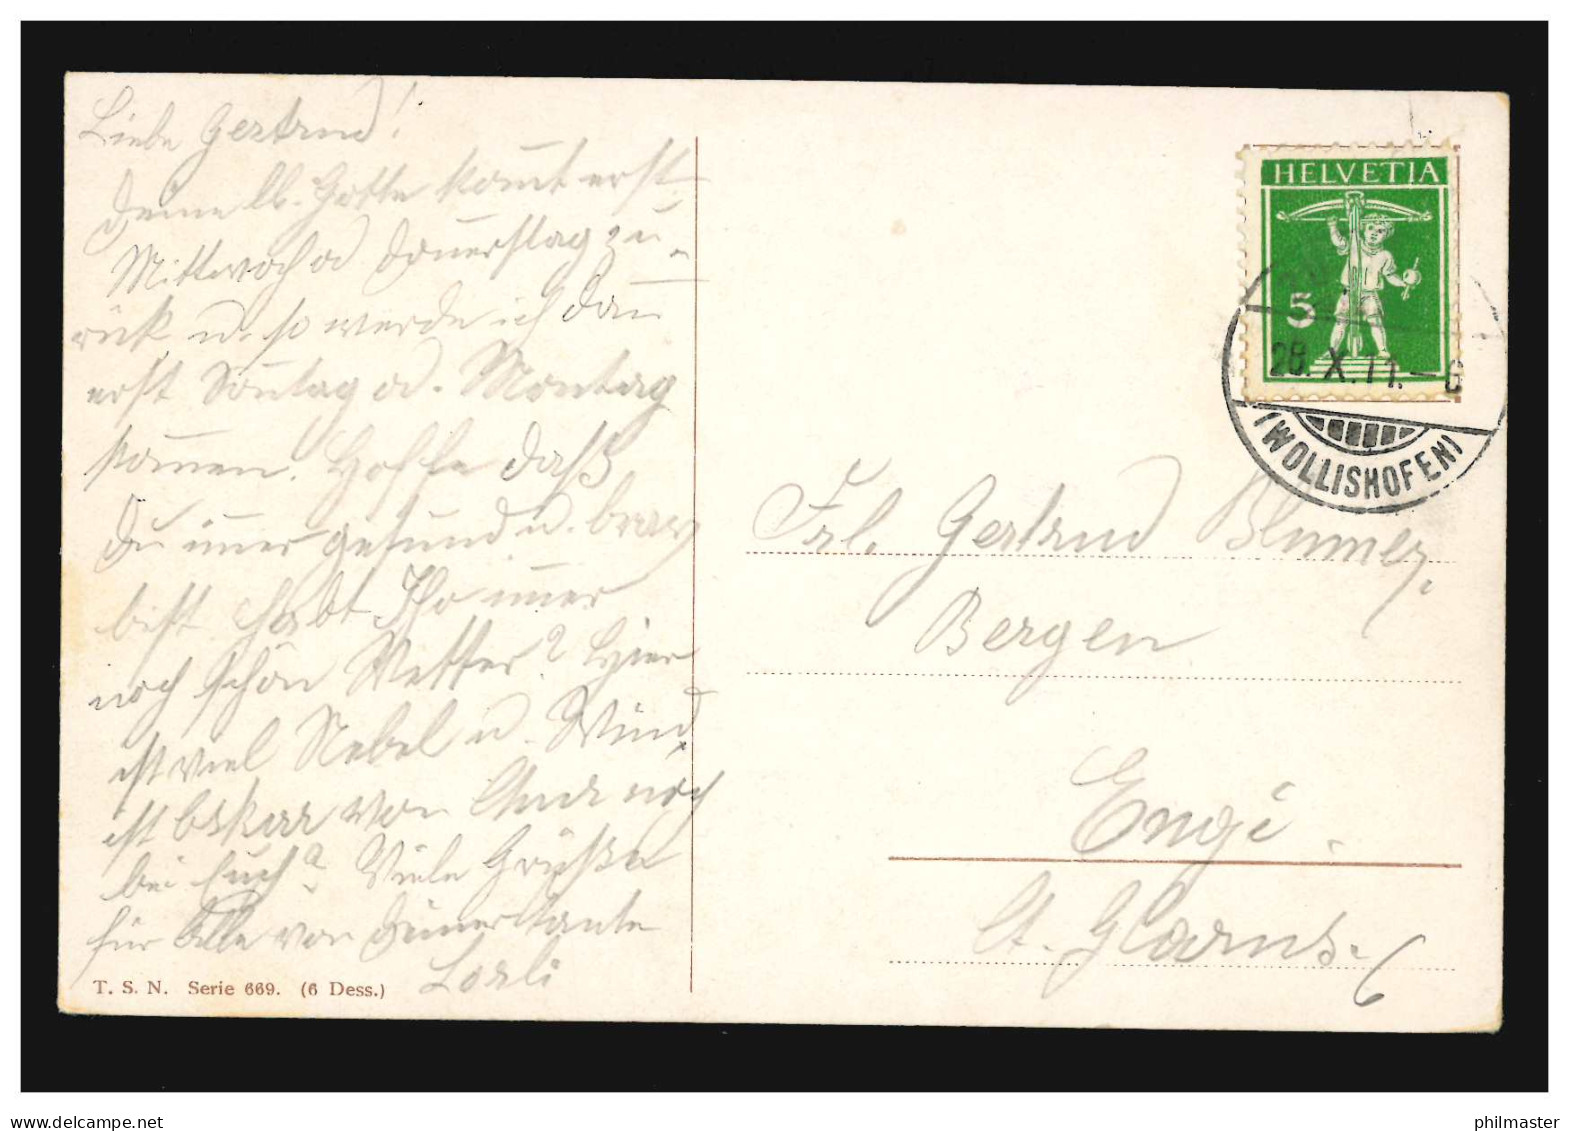 Liebe Gertrud!
Deine lb. Gotte kom̅t erst
Mittwoch od Donnerstag zu-
rück u. so werde ich dan̅
erst Son̅tag od. Montag
kom̅en. Hoffe daß
Du im̅er gesund u. brav
bist. Habt Ihr im̅er
noch schön Wetter? Hier
ist viel Nebel u. Wind
ist Oskar von noch
bei Euch? Viele Grüße
für Alle von Deiner Tante
T. S. N. Serie 669. (6 Dess.)
HELVETIA
5
28. X. 11. - 6
(WOLLISHOFEN)
Frl. Gertrud Blumer,
Bergen
Engi.
Ct. Glarus.
delcampe.net
philmaster